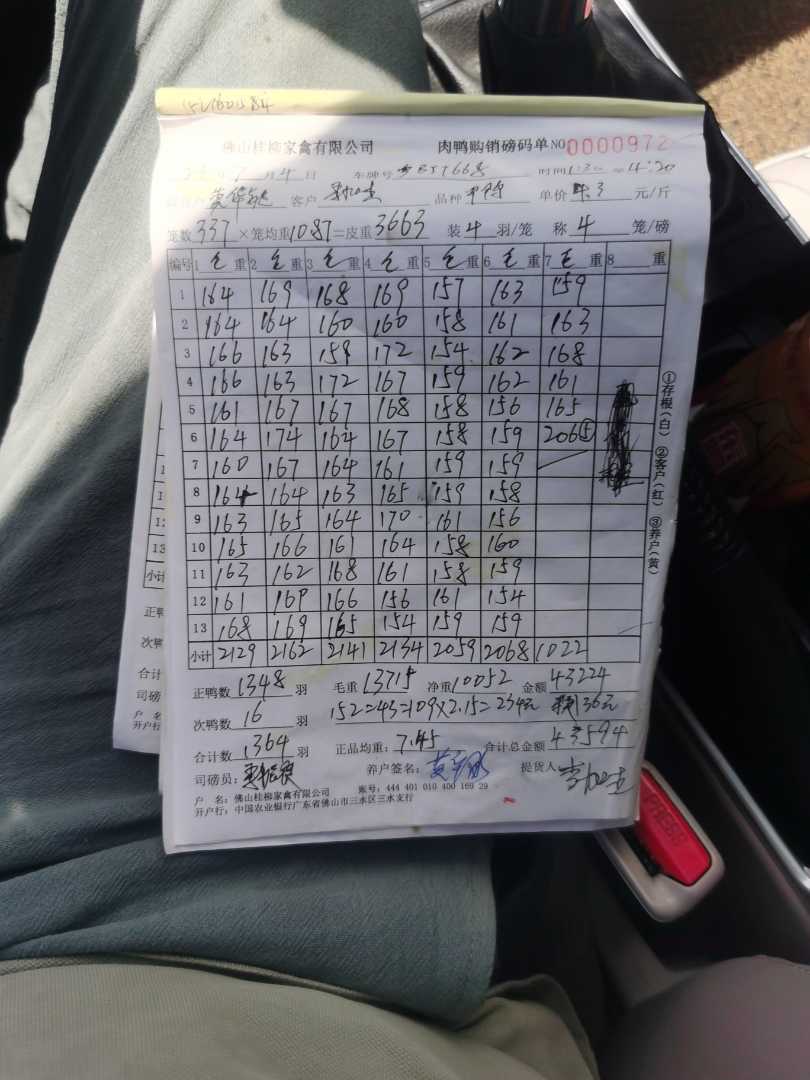 佛山桂柳家禽有限公司 肉鸭购销磅码单 NO 0000972
月4日 车牌号 时间 4:20
客户 品种 单价 4.3 元/斤
笼数 337 ×笼均重 1087 =皮重 3663 装 4 羽/笼 称 4 笼/磅
编号 1 毛 重 2 毛 重 3 毛 重 4 毛 重 5 毛 重 6 毛 重 7 毛 重 8 重
1 164 169 168 169 157 163 159
2 164 164 160 160 158 161 163
3 166 163 159 172 154 162 168
4 166 163 172 167 159 162 161
5 161 167 167 168 158 156 165
6 164 174 164 167 158 159 206⑤
7 160 167 164 161 159 159
8 164 164 163 165 159 158
9 163 165 164 170 161 156
10 165 166 161 164 158 160
11 163 162 168 161 158 159
12 161 169 166 156 161 154
13 168 169 165 154 159 159
小计 2129 2162 2141 2134 2059 2068 1022
①存根(白) ②客户(红) ③养户(黄)
正鸭数 1348 羽 毛重 13715 净重 10052 金额 43224
次鸭数 16 羽 152=43=109×2.15=234元 36元
合计数 1364 羽 正品均重: 7.45 合计总金额 43594
司磅员: 养户签名: 提货人
户 名: 佛山桂柳家禽有限公司 账号: 444 401 010 400 169 29
开户行: 中国农业银行广东省佛山市三水区三水支行